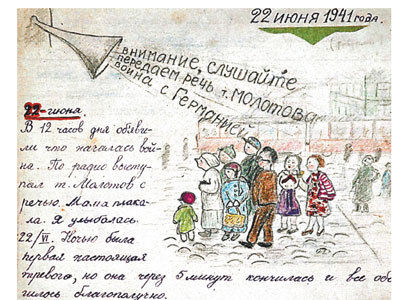 22 июня 1941 года.
внимание, слушайте
передаём речь т. Молотова
война с Германией
22-июня.
В 12 часов дня объяви-
ли что началась вой-
на. По радио высту-
пал т. Молотов с
речью. Мама плака-
ла. Я улыбалась.
22/VI. Ночью была
первая настоящая
тревога, но она через 5 минут кончилась и все обо
шлось благополучно.